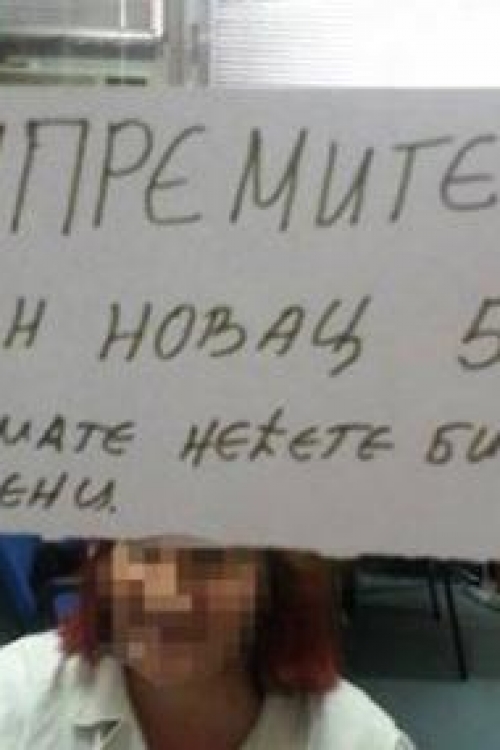 ПРЕМИТЕ
Н НОВАЦ 5
МАТЕ НЕЋЕТЕ БИ
ЕНИ.